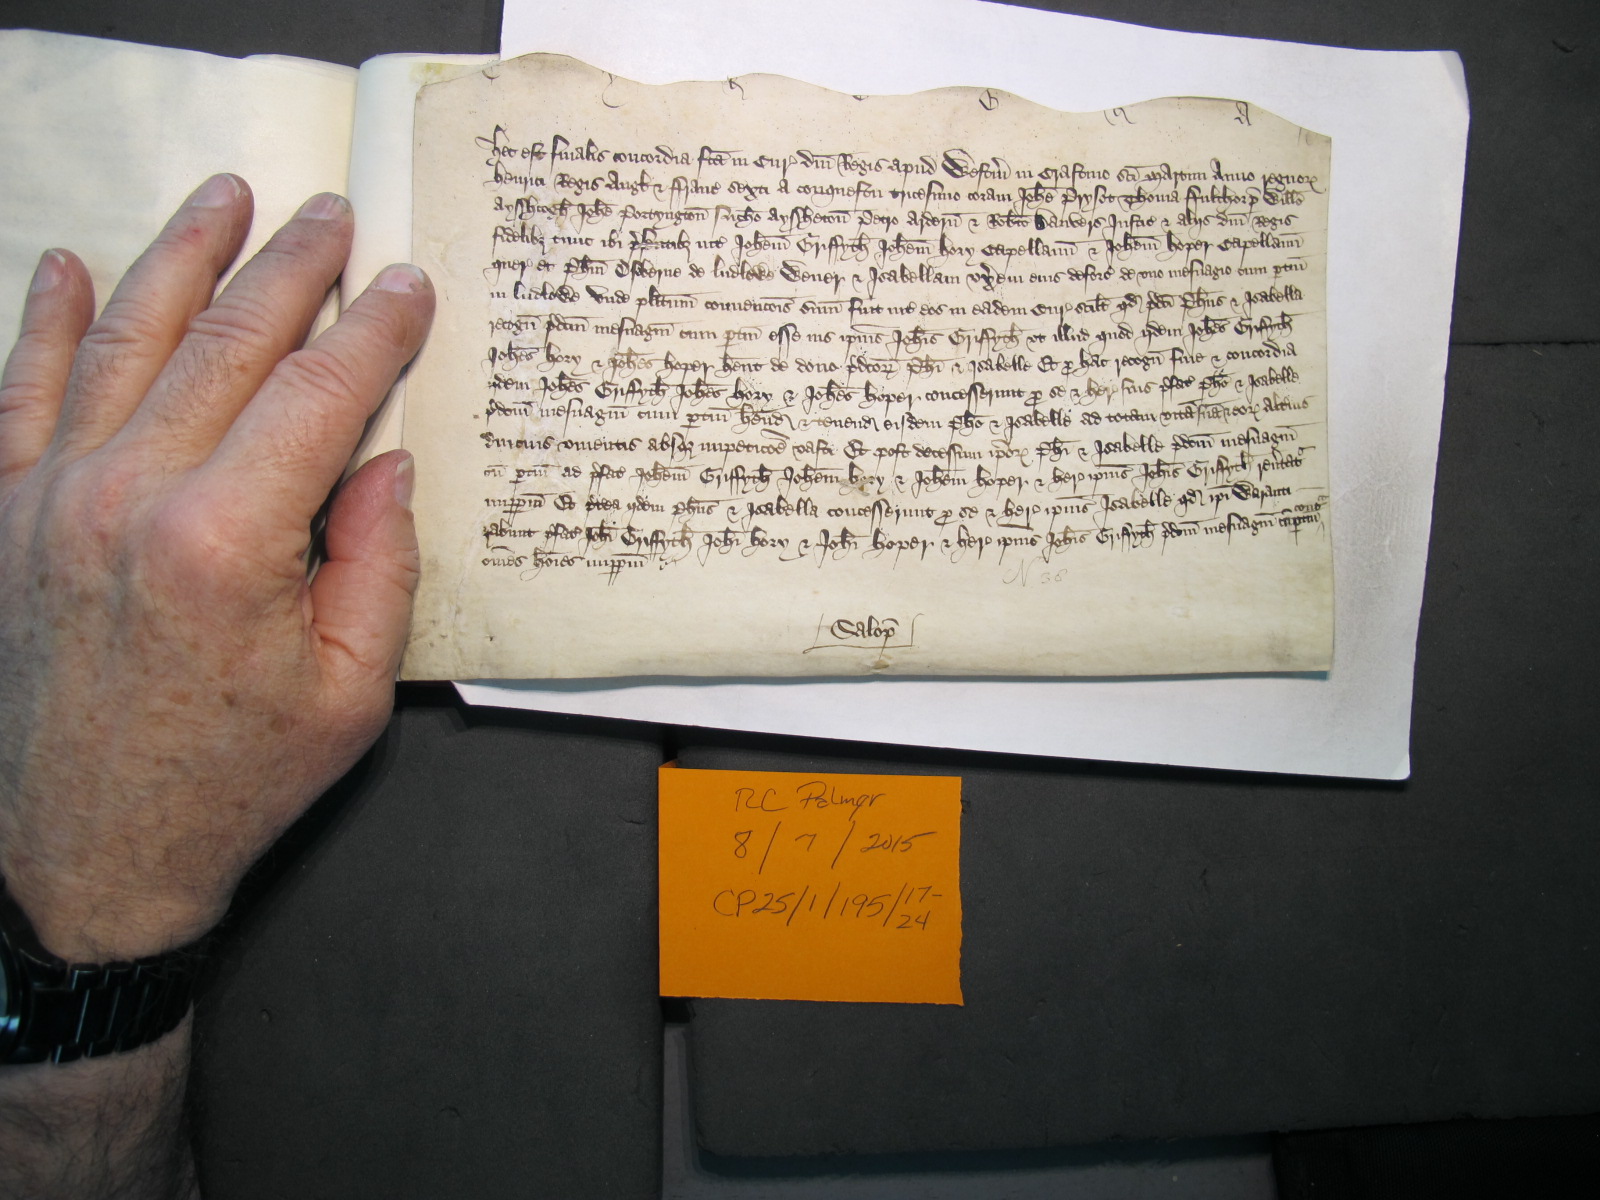 Hec est finalis concordia fca in Cur dni Regis apud Westm in Crastino sci Martini Anno regnor
Henrici Regis Angl & Franc sexti a conquestu tricesimo coram Johe Prysot Thoma Fulthorp Willo
Ayssheogh Johe Portyngton Nicho Ayssheton Petro Ardern & Robto Danvers Justic & alijs dni Regis
fidelibz tunc ibi psentibz int Johem Gryffyth Johem hory Capellanu & Johem hoper Capellanu
quer et Phm Osberne de Ludlowe Wever & Isabellam uxem eius deforc de uno mesuagio cum ptin
in Ludlowe Unde plitum convencois sum fuit int eos in eadem Cur Scilt qd pdci Phus & Isabella
recogn pdcm mesuagiu cum ptin esse ius ipius Johis Gryffyth ut illud quod ijdem Johes Gryffyth
Johes hory & Johes hoper hent de dono pdcor Phi & Isabelle Et p hac recogn fine & concordia
ijdem Johes Gryffyth Johes hory & Johes hoper concesserunt p se & her suis pfat Pho & Isabelle
pdcm mesuagiu cum ptin hend & tenend eisdem Pho & Isabelle ad totam vitam eor alterius
diucius viventis absqz impeticoe vasti Et post decessum ipor Phi & Isabelle pdcm mesuagiu
cu ptin ad pfat Johem Gryffyth Johem hory & Johem hoper & her ipius Johis Gryffyth revtat
impm Et ptea ijdem Phus & Isabella concesserunt p se & her ipius Isabelle qd ipi Waranti
zabunt pfat Johi Gryffyth Johi hory & Johi hoper & her ipius Johis Gryffyth pdcm mesuagiu cu ptin cont
omes hoies impm
N 36
Salop
RC Palmer
8 / 7 / 2015
CP25/1/195/17-
24